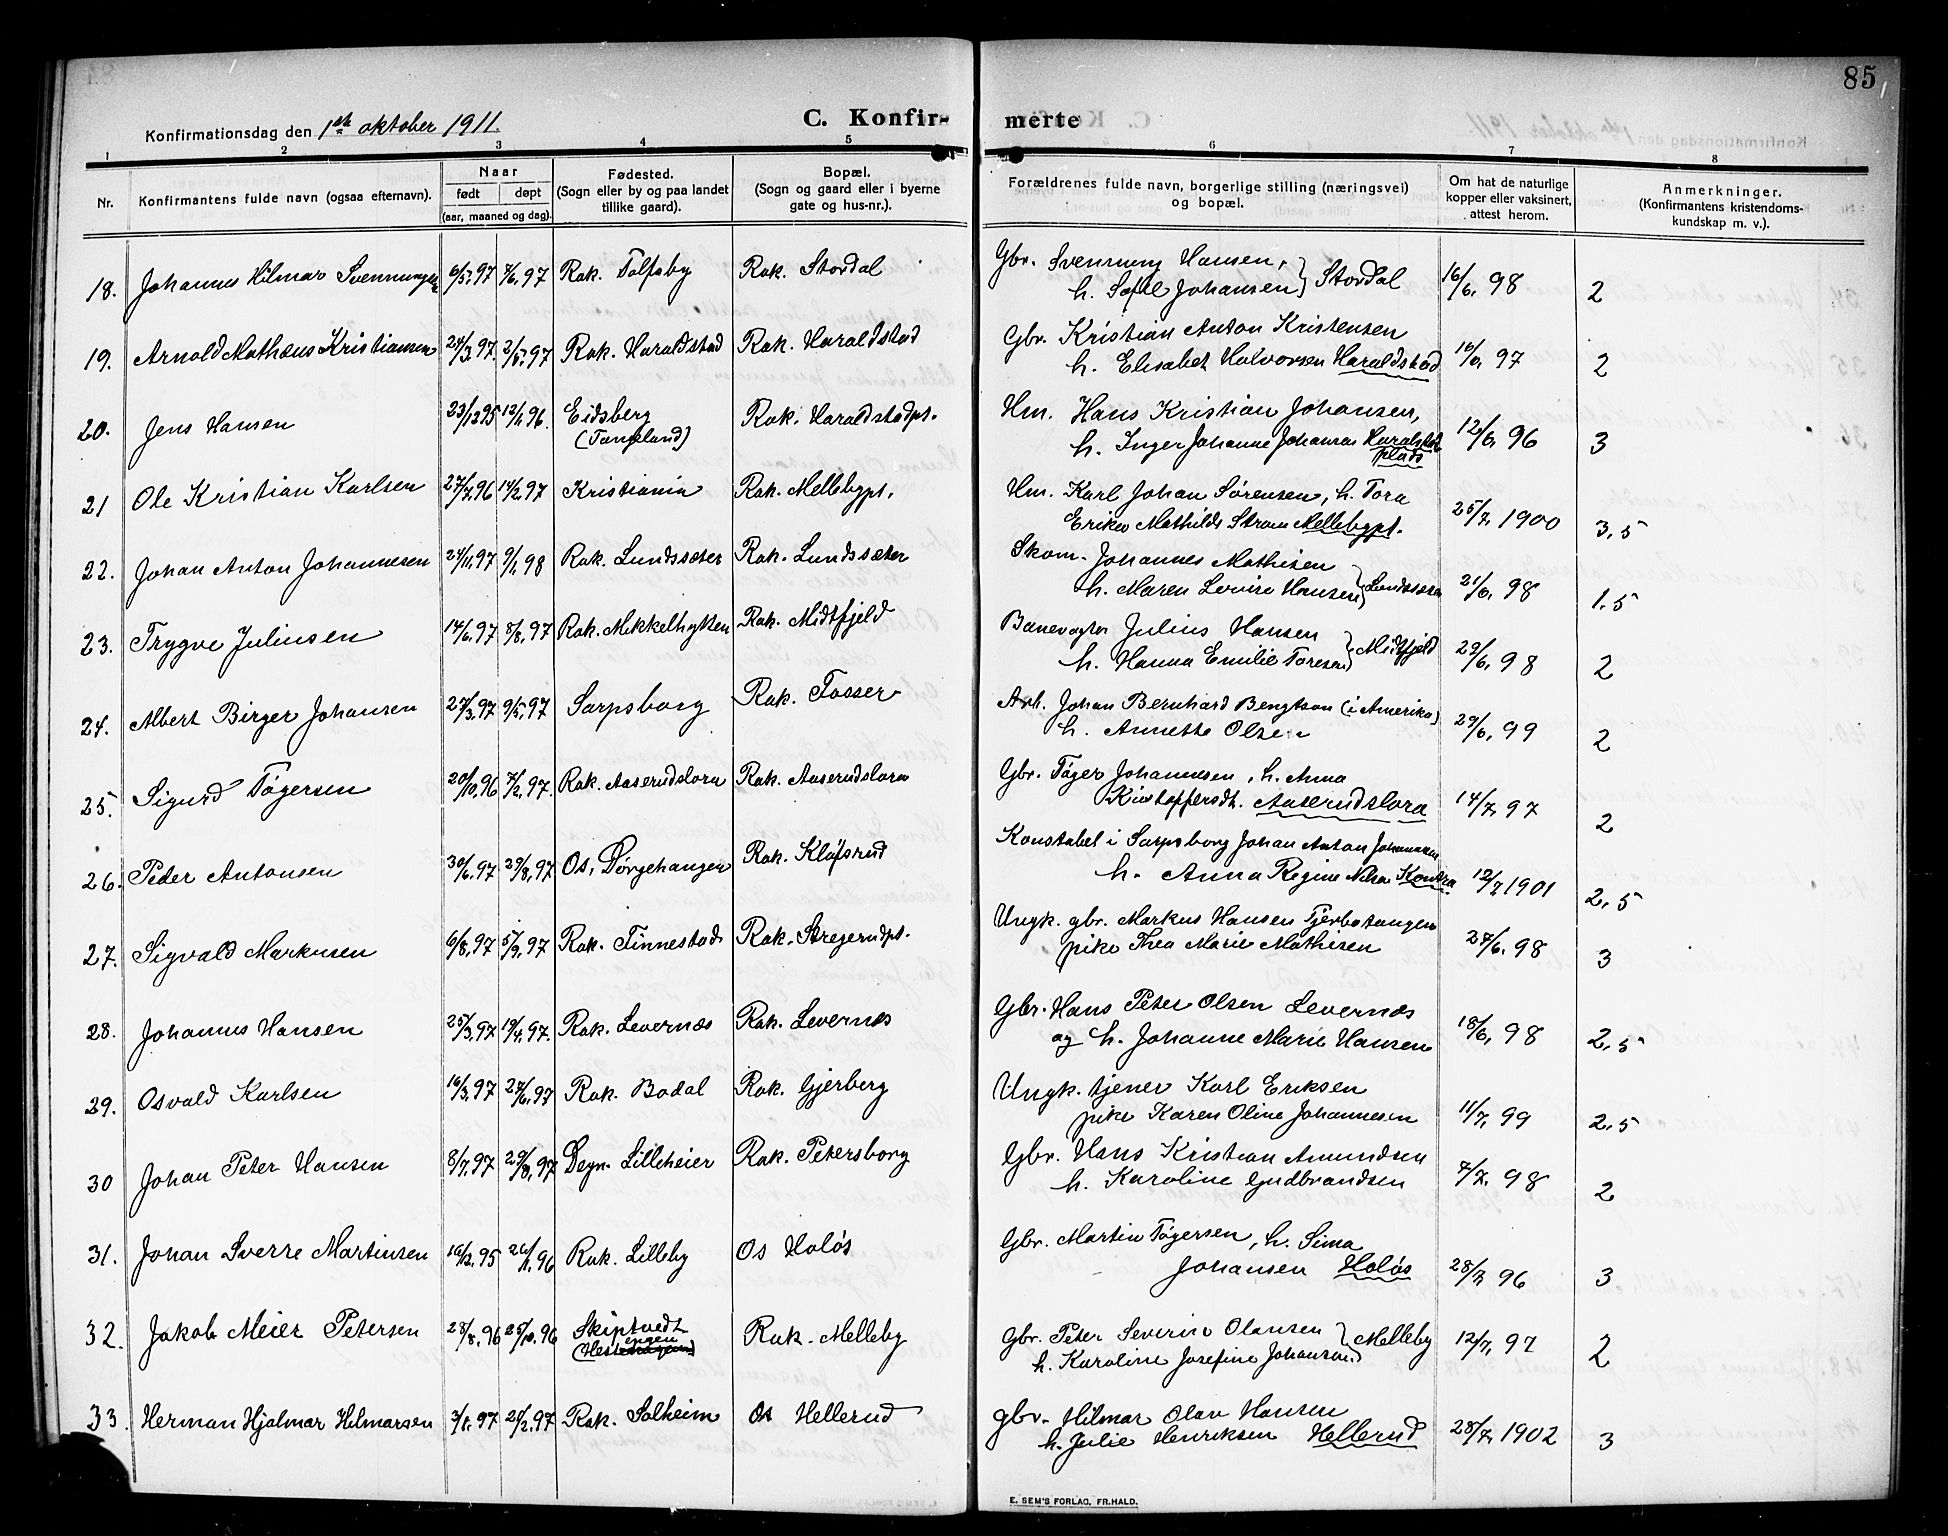 85
Konfirmationsdag den 1ste oktober 1911.
C. Konfir- merte
1 2 3 4 5 6 7 8
Nr.
Konfirmantens fulde navn (ogsaa efternavn).
Naar
født døpt
(aar, maaned og dag).
Fødested.
(Sogn eller by og paa landet
tillike gaard).
Bopæl.
(Sogn og gaard eller i byerne
gate og hus-nr.).
Forældrenes fulde navn, borgerlige stilling (næringsvei)
og bopæl.
Om hat de naturlige
kopper eller vaksinert,
attest herom.
Anmerkninger.
(Konfirmantens kristendoms-
kundskap m. v.).
18. Johannes Hilmar Svenningsen 6/5.97 7/6.97 Rak. Tolfsby Rak. Stordal
Gbr. Svenning Hansen,
h. Sofie Johansen } Stordal 16/6. 98 2
19. Arnold Mathæus Kristiansen 24/3.97. 2/5.97 Rak. Haraldstad Rak. Haraldstad
Gbr. Kristian Anton Kristensen
h. Elisabet Halvorsen Haraldstad 16/6. 97 2
20. Jens Hansen 23/12 95 12/1.96. Eidsberg
(Tangeland) Rak. Haraldstadpt.
Hm. Hans Kristian Johansen,
h. Inger Johanne Johansen Haralstad
plads 12/6. 96 3
21 Ole Kristian Karlsen 27/7.96 14/2.97 Kristiania Rak. Mellebypt.
Hm. Karl Johan Sørensen, h. Tora
Erika Mathilde Strøm Mellebypt. 25/7. 1900 3,5
22. Johan Anton Johannesen 24/11.97 9/1.98 Rak. Lundssæter Rak. Lundssæter
Skom. Johannes Mathisen
h. Maren Lovise Hansen } Lundssæter 21/6. 98 1,5
23. Trygve Juliussen 14/6.97 8/8.97 Rak. Mikkelhytten Rak. Midtfjeld
Banevogter Julius Hansen
h. Hanna Emilie Toresen } Midtfjeld 29/6. 98 2
24. Albert Birger Johansen 27/3.97 9/5.97 Sarpsborg Rak. Fosser
Arb. Johan Bernhard Bengtson (i Amerika)
h. Annette Olsen 29/6. 99 2
25. Sigurd Tøgersen 20/10.96 7/2.97. Rak. Aaserudslora Rak. Aaserudslora
Gbr. Tøger Johannesen, h. Anna
Kristoffersdt. Aaserudslora 14/7. 97 2
26. Peder Antonsen 30/6.97 29/8.97 Os, Dørgehangen Rak. Kløfsrud
Konstabel i Sarpsborg Johan Anton Johannesen
h. Anna Regine 12/7 1901 2,5
27. Sigvald Markusen 6/8.97 5/9.97 Rak. Finnestad Rak. Stregerudpt.
Ungk. gbr. Markus Hansen Tjerbotangen
pike Thea Marie Mathisen 27/6. 98 3
28. Johannes Hansen 25/3.97 19/4.97. Rak. Levernæs Rak. Levernæs
Gbr. Hans Peter Olsen Levernæs
og h. Johanne Marie Hansen 18/6. 98 2,5
29. Osvald Karlsen 16/3.97 27/6.97 Rak. Bodal Rak. Gjerberg
Ungk. tjener Karl Eriksen
pike Karen Oline Johannesen 11/7. 99 2,5
30 Johan Peter Hansen 8/7.97 29/8.97 Degn. Lilleheier Rak. Petersborg
Gbr. Hans Kristian Amundsen
h. Karoline Gudbrandsen 7/7. 98 2
31. Johan Sverre Martinsen 16/12.95 26/1.96 Rak. Lilleby Os Holøs
Gbr. Martin Tøgersen, h. Sina
Johansen Holøs 28/7 96 3
32. Jakob Meier Petersen 28/8.96 25/10.96 Skiptvedt
engen
(Hestehagen) Rak. Melleby
Gbr. Peter Severin Olausen
h. Karoline Josefine Johansen } Melleby 12/7. 97 2
33. Herman Hjalmar Hilmarsen 3/1.97 21/2.97 Rak. Solheim Os Hellerud
gbr. Hilmar Olav Hansen
h. Julie Henriksen Hellerud 28/7. 1902 3
E. SEM'S FORLAG, FR.HALD.